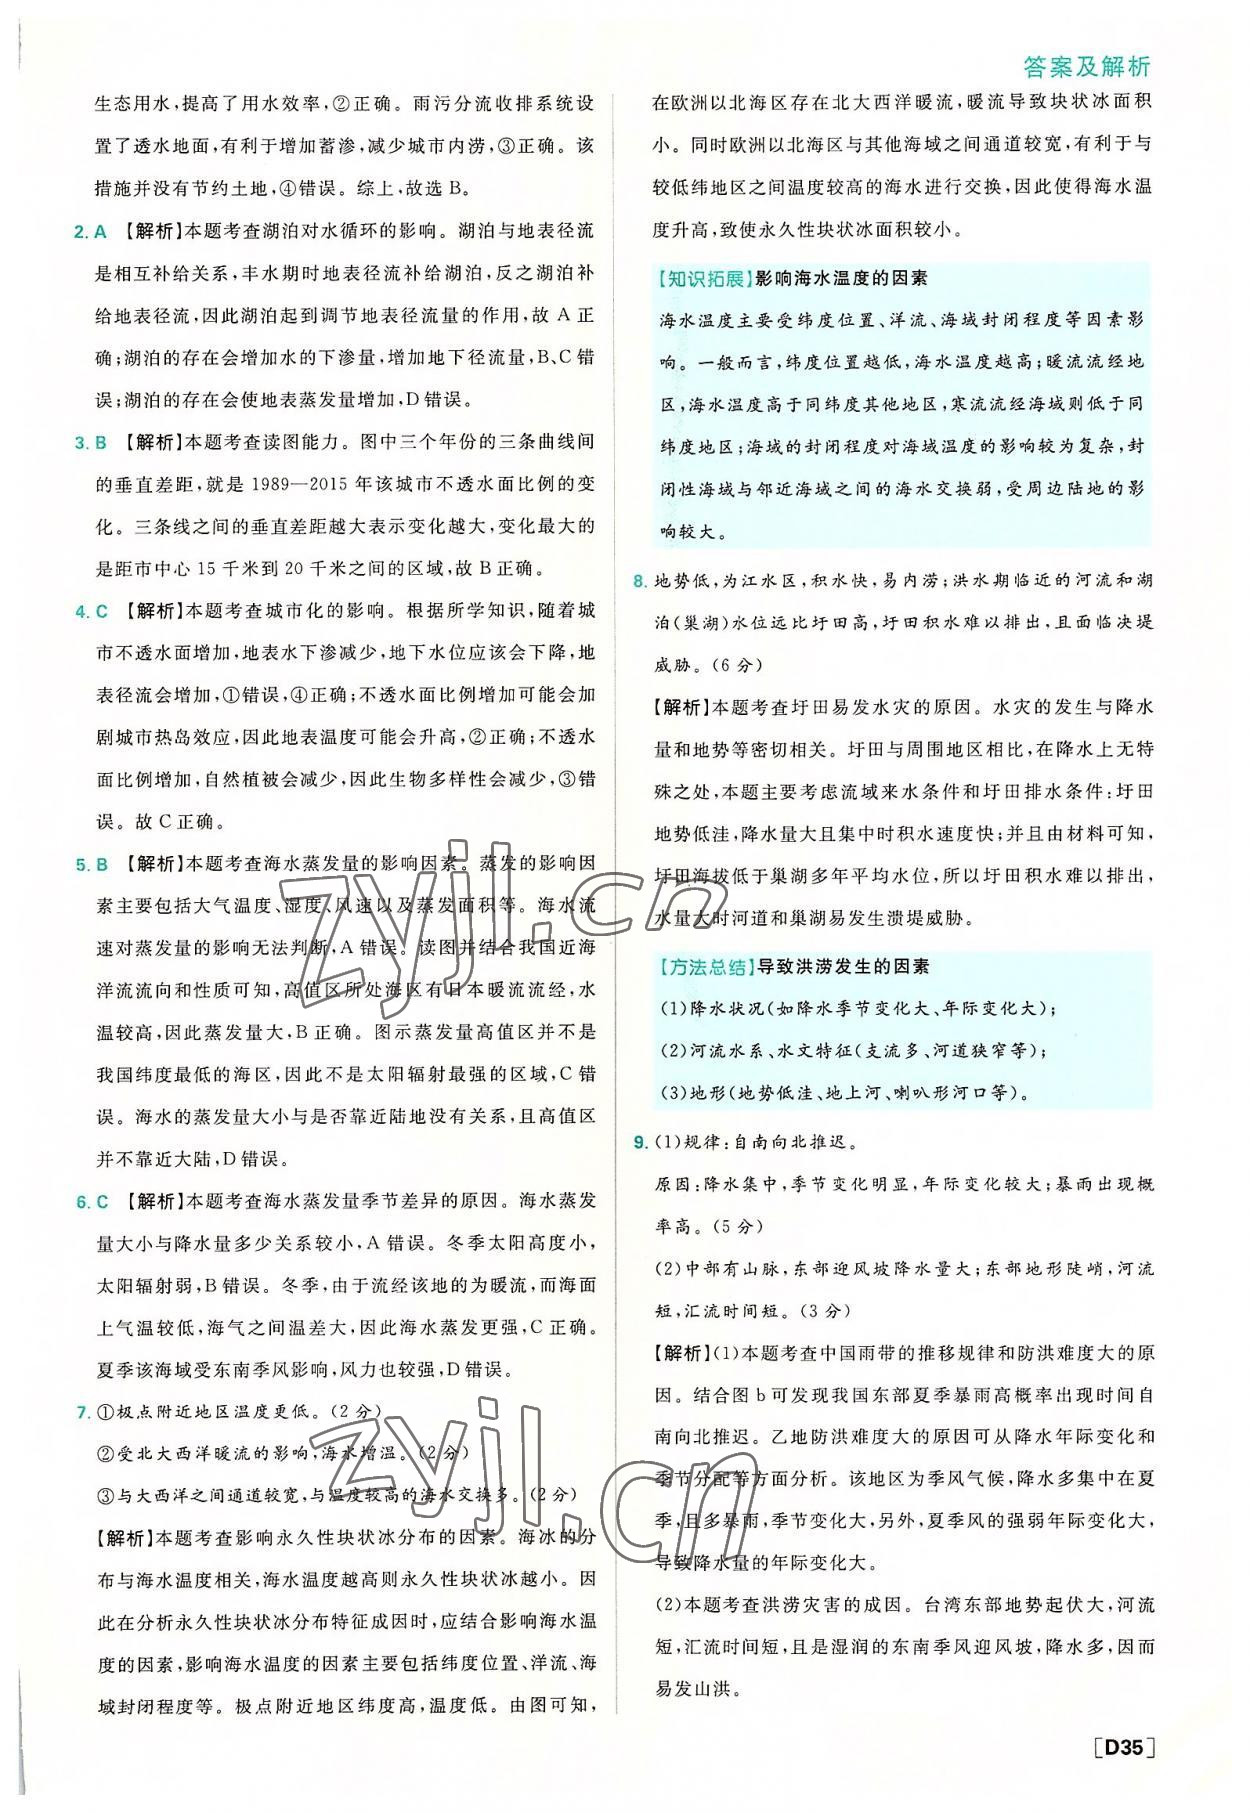 答案及解析
生态用水,提高了用水效率,②正确。雨污分流收排系统设
置了透水地面,有利于增加蓄渗,减少城市内涝,③正确。该
措施并没有节约土地,④错误。综上,故选 B。
2. A 【解析】本题考查湖泊对水循环的影响。湖泊与地表径流
是相互补给关系,丰水期时地表径流补给湖泊,反之湖泊补
给地表径流,因此湖泊起到调节地表径流量的作用,故 A 正
确;湖泊的存在会增加水的下渗量,增加地下径流量,B、C 错
误;湖泊的存在会使地表蒸发量增加,D 错误。
3. B 【解析】本题考查读图能力。图中三个年份的三条曲线间
的垂直差距,就是 1989—2015 年该城市不透水面比例的变
化。三条线之间的垂直差距越大表示变化越大,变化最大的
是距市中心 15 千米到 20 千米之间的区域,故 B 正确。
4. C 【解析】本题考查城市化的影响。根据所学知识,随着城
市不透水面增加,地表水下渗减少,地下水位应该会下降,地
表径流会增加,①错误,④正确;不透水面比例增加可能会加
剧城市热岛效应,因此地表温度可能会升高,②正确;不透水
面比例增加,自然植被会减少,因此生物多样性会减少,③错
误。故 C 正确。
5. B 【解析】本题考查海水蒸发量的影响因素。蒸发的影响因
素主要包括大气温度、湿度、风速以及蒸发面积等。海水流
速对蒸发量的影响无法判断,A 错误。读图并结合我国近海
洋流流向和性质可知,高值区所处海区有日本暖流流经,水
温较高,因此蒸发量大,B 正确。图示蒸发量高值区并不是
我国纬度最低的海区,因此不是太阳辐射最强的区域,C 错
误。海水的蒸发量大小与是否靠近陆地没有关系,且高值区
并不靠近大陆,D 错误。
6. C 【解析】本题考查海水蒸发量季节差异的原因。海水蒸发
量大小与降水量多少关系较小,A 错误。冬季太阳高度小,
太阳辐射弱,B 错误。冬季,由于流经该地的为暖流,而海面
上气温较低,海气之间温差大,因此海水蒸发更强,C 正确。
夏季该海域受东南季风影响,风力也较强,D 错误。
7. ①极点附近地区温度更低。(2 分)
②受北大西洋暖流的影响,海水增温。(2 分)
③与大西洋之间通道较宽,与温度较高的海水交换多。(2 分)
【解析】本题考查影响永久性块状冰分布的因素。海冰的分
布与海水温度相关,海水温度越高则永久性块状冰越小。因
此在分析永久性块状冰分布特征成因时,应结合影响海水温
度的因素,影响海水温度的因素主要包括纬度位置、洋流、海
域封闭程度等。极点附近地区纬度高,温度低。由图可知,
在欧洲以北海区存在北大西洋暖流,暖流导致块状冰面积
小。同时欧洲以北海区与其他海域之间通道较宽,有利于与
较低纬地区之间温度较高的海水进行交换,因此使得海水温
度升高,致使永久性块状冰面积较小。
【知识拓展】影响海水温度的因素
海水温度主要受纬度位置、洋流、海域封闭程度等因素影
响。一般而言,纬度位置越低,海水温度越高;暖流流经地
区,海水温度高于同纬度其他地区,寒流流经海域则低于同
纬度地区;海域的封闭程度对海域温度的影响较为复杂,封
闭性海域与邻近海域之间的海水交换弱,受周边陆地的影
响较大。
8. 地势低,为汇水区,积水快,易内涝;洪水期临近的河流和湖
泊(巢湖)水位远比圩田高,圩田积水难以排出,且面临决堤
威胁。(6 分)
【解析】本题考查圩田易发水灾的原因。水灾的发生与降水
量和地势等密切相关。圩田与周围地区相比,在降水上无特
殊之处,本题主要考虑流域来水条件和圩田排水条件:圩田
地势低洼,降水量大且集中时积水速度快;并且由材料可知,
圩田海拔低于巢湖多年平均水位,所以圩田积水难以排出,
水量大时河道和巢湖易发生溃堤威胁。
【方法总结】导致洪涝发生的因素
(1)降水状况(如降水季节变化大、年际变化大);
(2)河流水系、水文特征(支流多、河道狭窄等);
(3)地形(地势低洼、地上河、喇叭形河口等)。
9. (1)规律:自南向北推迟。
原因:降水集中,季节变化明显,年际变化较大;暴雨出现概
率高。(5 分)
(2)中部有山脉,东部迎风坡降水量大;东部地形陡峭,河流
短,汇流时间短。(3 分)
【解析】(1)本题考查中国雨带的推移规律和防洪难度大的原
因。结合图 b 可发现我国东部夏季暴雨高概率出现时间自
南向北推迟。乙地防洪难度大的原因可从降水年际变化和
季节分配等方面分析。该地区为季风气候,降水多集中在夏
季,且多暴雨,季节变化大,另外,夏季风的强弱年际变化大,
导致降水量的年际变化大。
(2)本题考查洪涝灾害的成因。台湾东部地势起伏大,河流
短,汇流时间短,且是湿润的东南季风迎风坡,降水多,因而
易发山洪。
[D35]
zyjl.cn
zyjl.cn